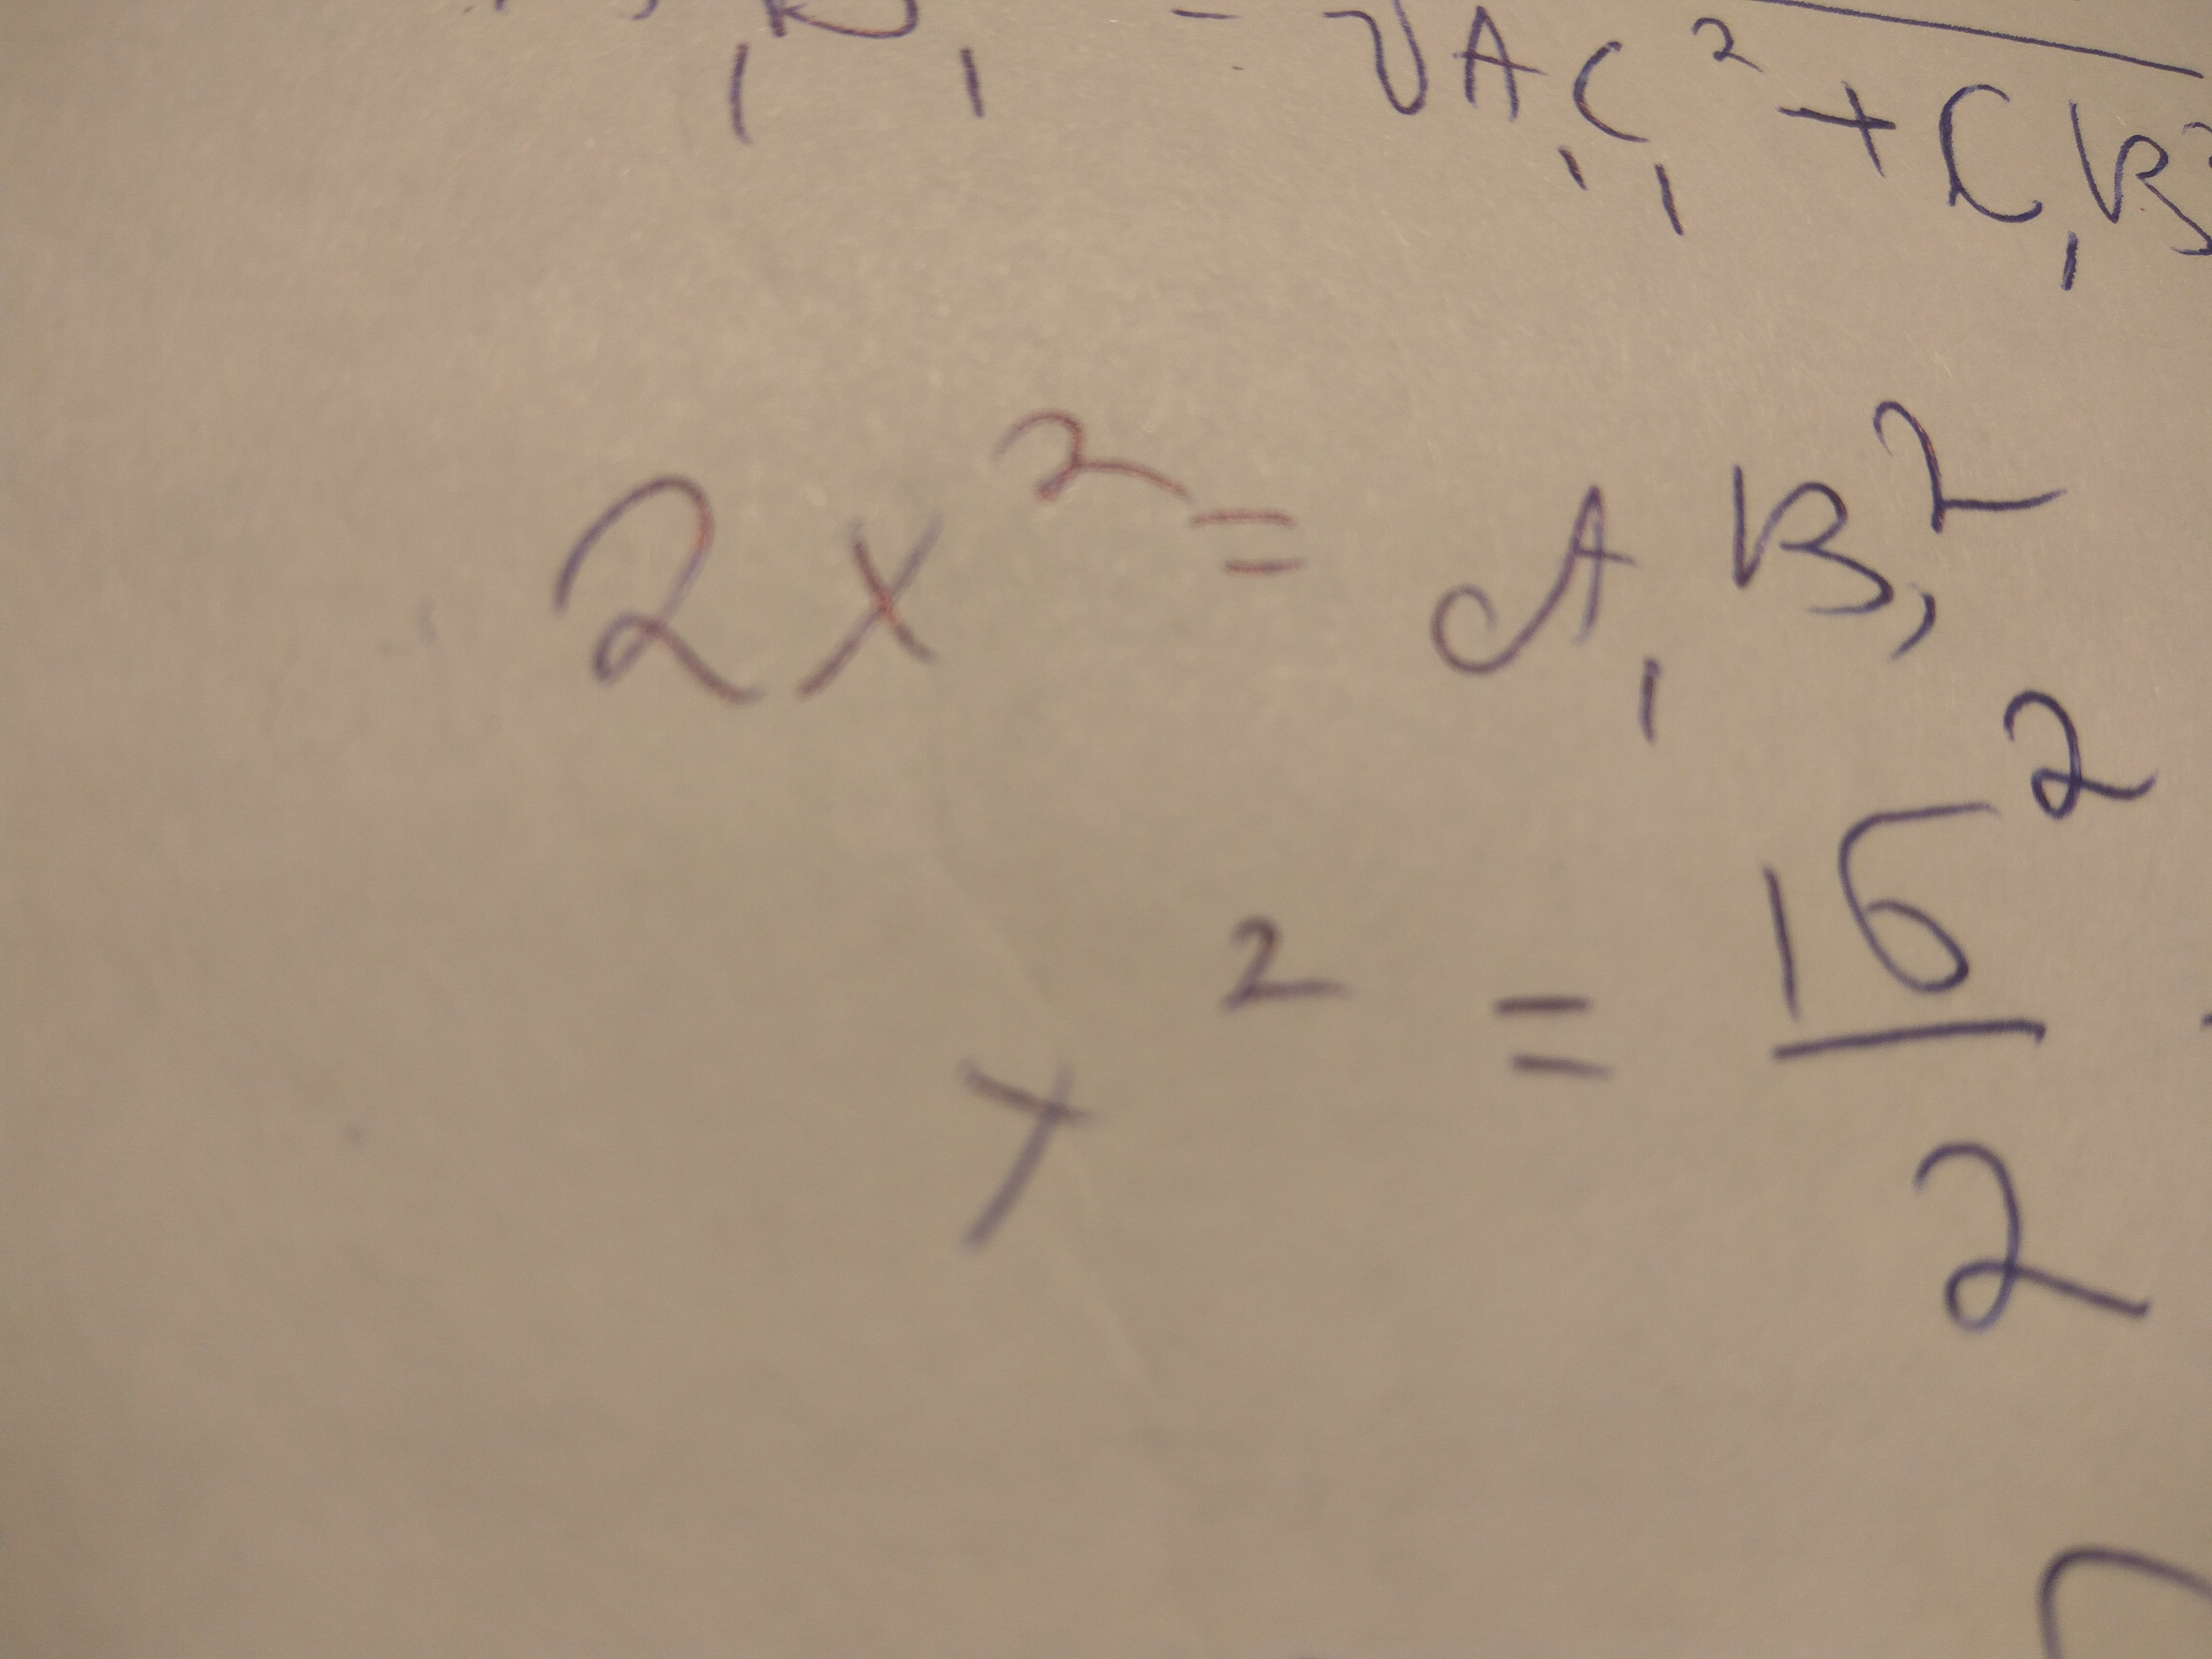 B₁ = √A₁C₁² + C₁B²
2x² = A₁B₁²
x² = 16²/2